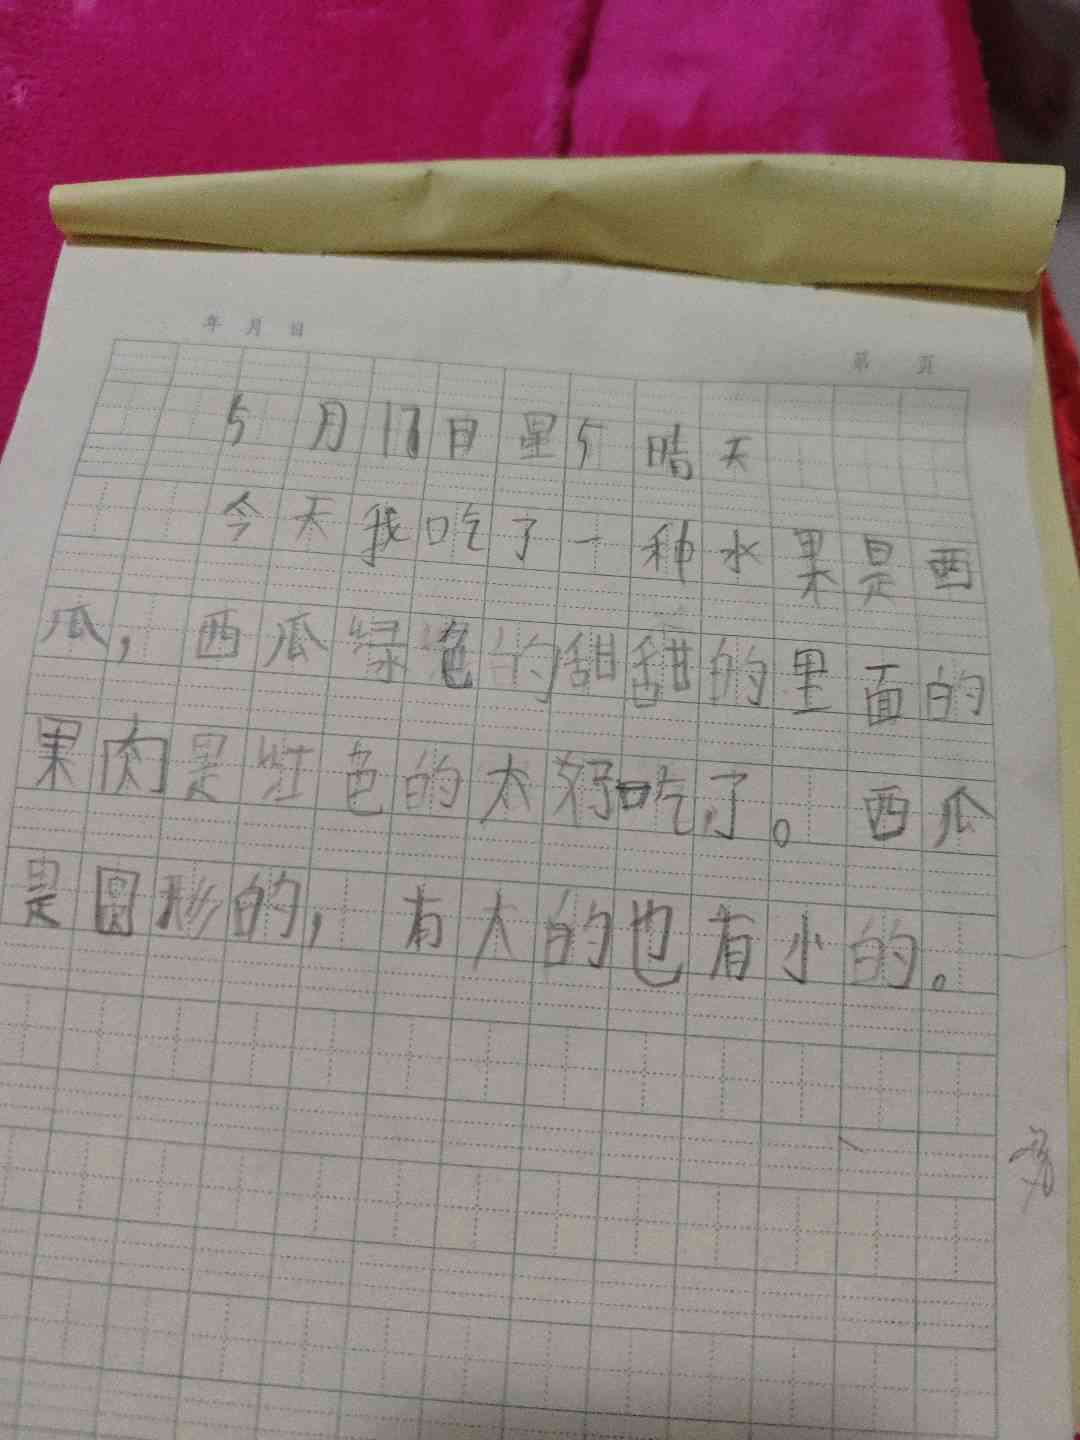 年 月 日
第 页
5月17日星5 晴天
今天我吃了一种水果是西
瓜，西瓜绿色的甜甜的里面的
果肉是红色的太好吃了。西瓜
是圆形的，有大的也有小的。